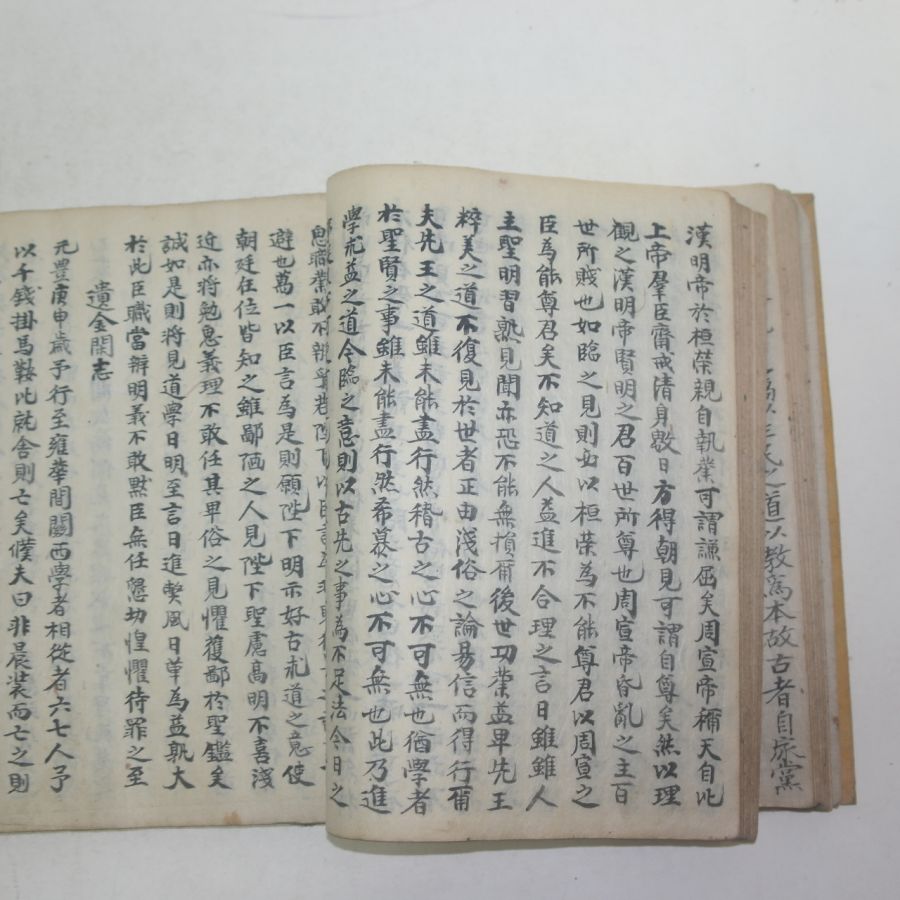 漢明帝於桓榮親自執業可謂謙屈矣周宣帝稱天自比
上帝羣臣齋戒清身數日方得朝見可謂自尊矣然以理
觀之漢明帝賢明之君百世所尊也周宣帝昏亂之主百
世所賤也如臨之見則必以桓榮為不能尊君以周宣之
臣為能尊君矣不知道之人益進不合理之言日雖雖人
主聖明習熟見聞亦恐不能無損爾後世功業益卑先王
粹美之道不復見於世者正由淺俗之論易信而得行爾
夫先王之道雖未能盡行然稽古之心不可無也猶學者
於聖賢之事雖未能盡行然希慕之心不可無也此乃進
學求益之道今臨之意則以古先之事為不足法今日之
思職業敢不
遊也萬一以臣言為是則願陛下明示好古求道之意使
朝廷在位皆知之雖鄙陋之人見陛下聖慮高明不喜淺
近亦將勉思義理不敢任其卑俗之見懼獲鄙於聖鑑矣
誠如是則將見道學日明至言日進弊風日革為益孰大
於此臣職當辨明義不敢默臣無任懇切惶懼待罪之至
遺金閑志
元豊庚申歲予行至雍華間關西學者相從者六七人予
以千錢掛馬鞍比就舍則亡矣僕夫曰非晨裝而亡之則
之道以教為本故古者自家黨